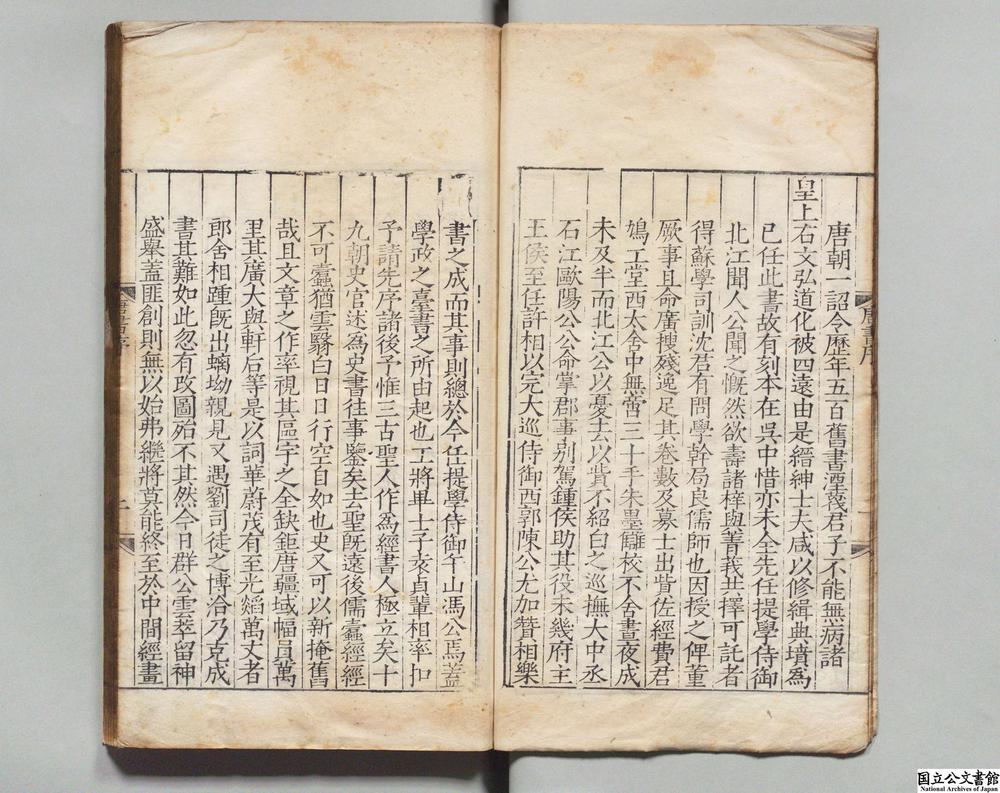 唐朝一詔令歷年五百舊書湮蔑君子不能無病諸
皇上右文弘道化被四遠由是縉紳士夫咸以修緝典墳為
已任此書故有刻本在吳中惜亦未全先任提學侍御
北江聞人公聞之慨然欲壽諸梓與菁莪共擇可託者
得蘇學司訓沈君有問學幹局良儒師也因授之俾董
厥事且命廣搜殘逸足其卷數及募士出貲佐經費君
鳩工堂西太舍中無啻三十手朱墨讎校不舍晝夜成
未及半而北江公以憂去以貲不紹白之巡撫大中丞
石江歐陽公公命掌郡事別駕鍾侯助其役未幾府主
王侯至任許相以完大巡侍御西郭陳公尤加贊相樂
唐書序
書之成而其事則總於今任提學侍御午山馮公焉蓋
學政之臺書之所由起也工將畢士子袠貞輩相率扣
予請先序諸後予惟三古聖人作為經書人極立矣十
九朝史官述為史書往事鑒矣去聖既遠後儒蠹經經
不可蠹猶雲翳日日行空自如也史又可以新掩舊
哉且文章之作率視其區宇之全缺鉅唐疆域幅員萬
里其廣大與軒后等是以詞華蔚茂有至光燄萬丈者
郎舍相踵既出螭坳親見又遇劉司徒之博洽乃克成
書其難如此忽有改圖殆不其然今日群公雲萃留神
盛舉蓋匪創則無以始弗繼將莫能終至於中間經畫
唐書序
二
国立公文書館
National Archives of Japan